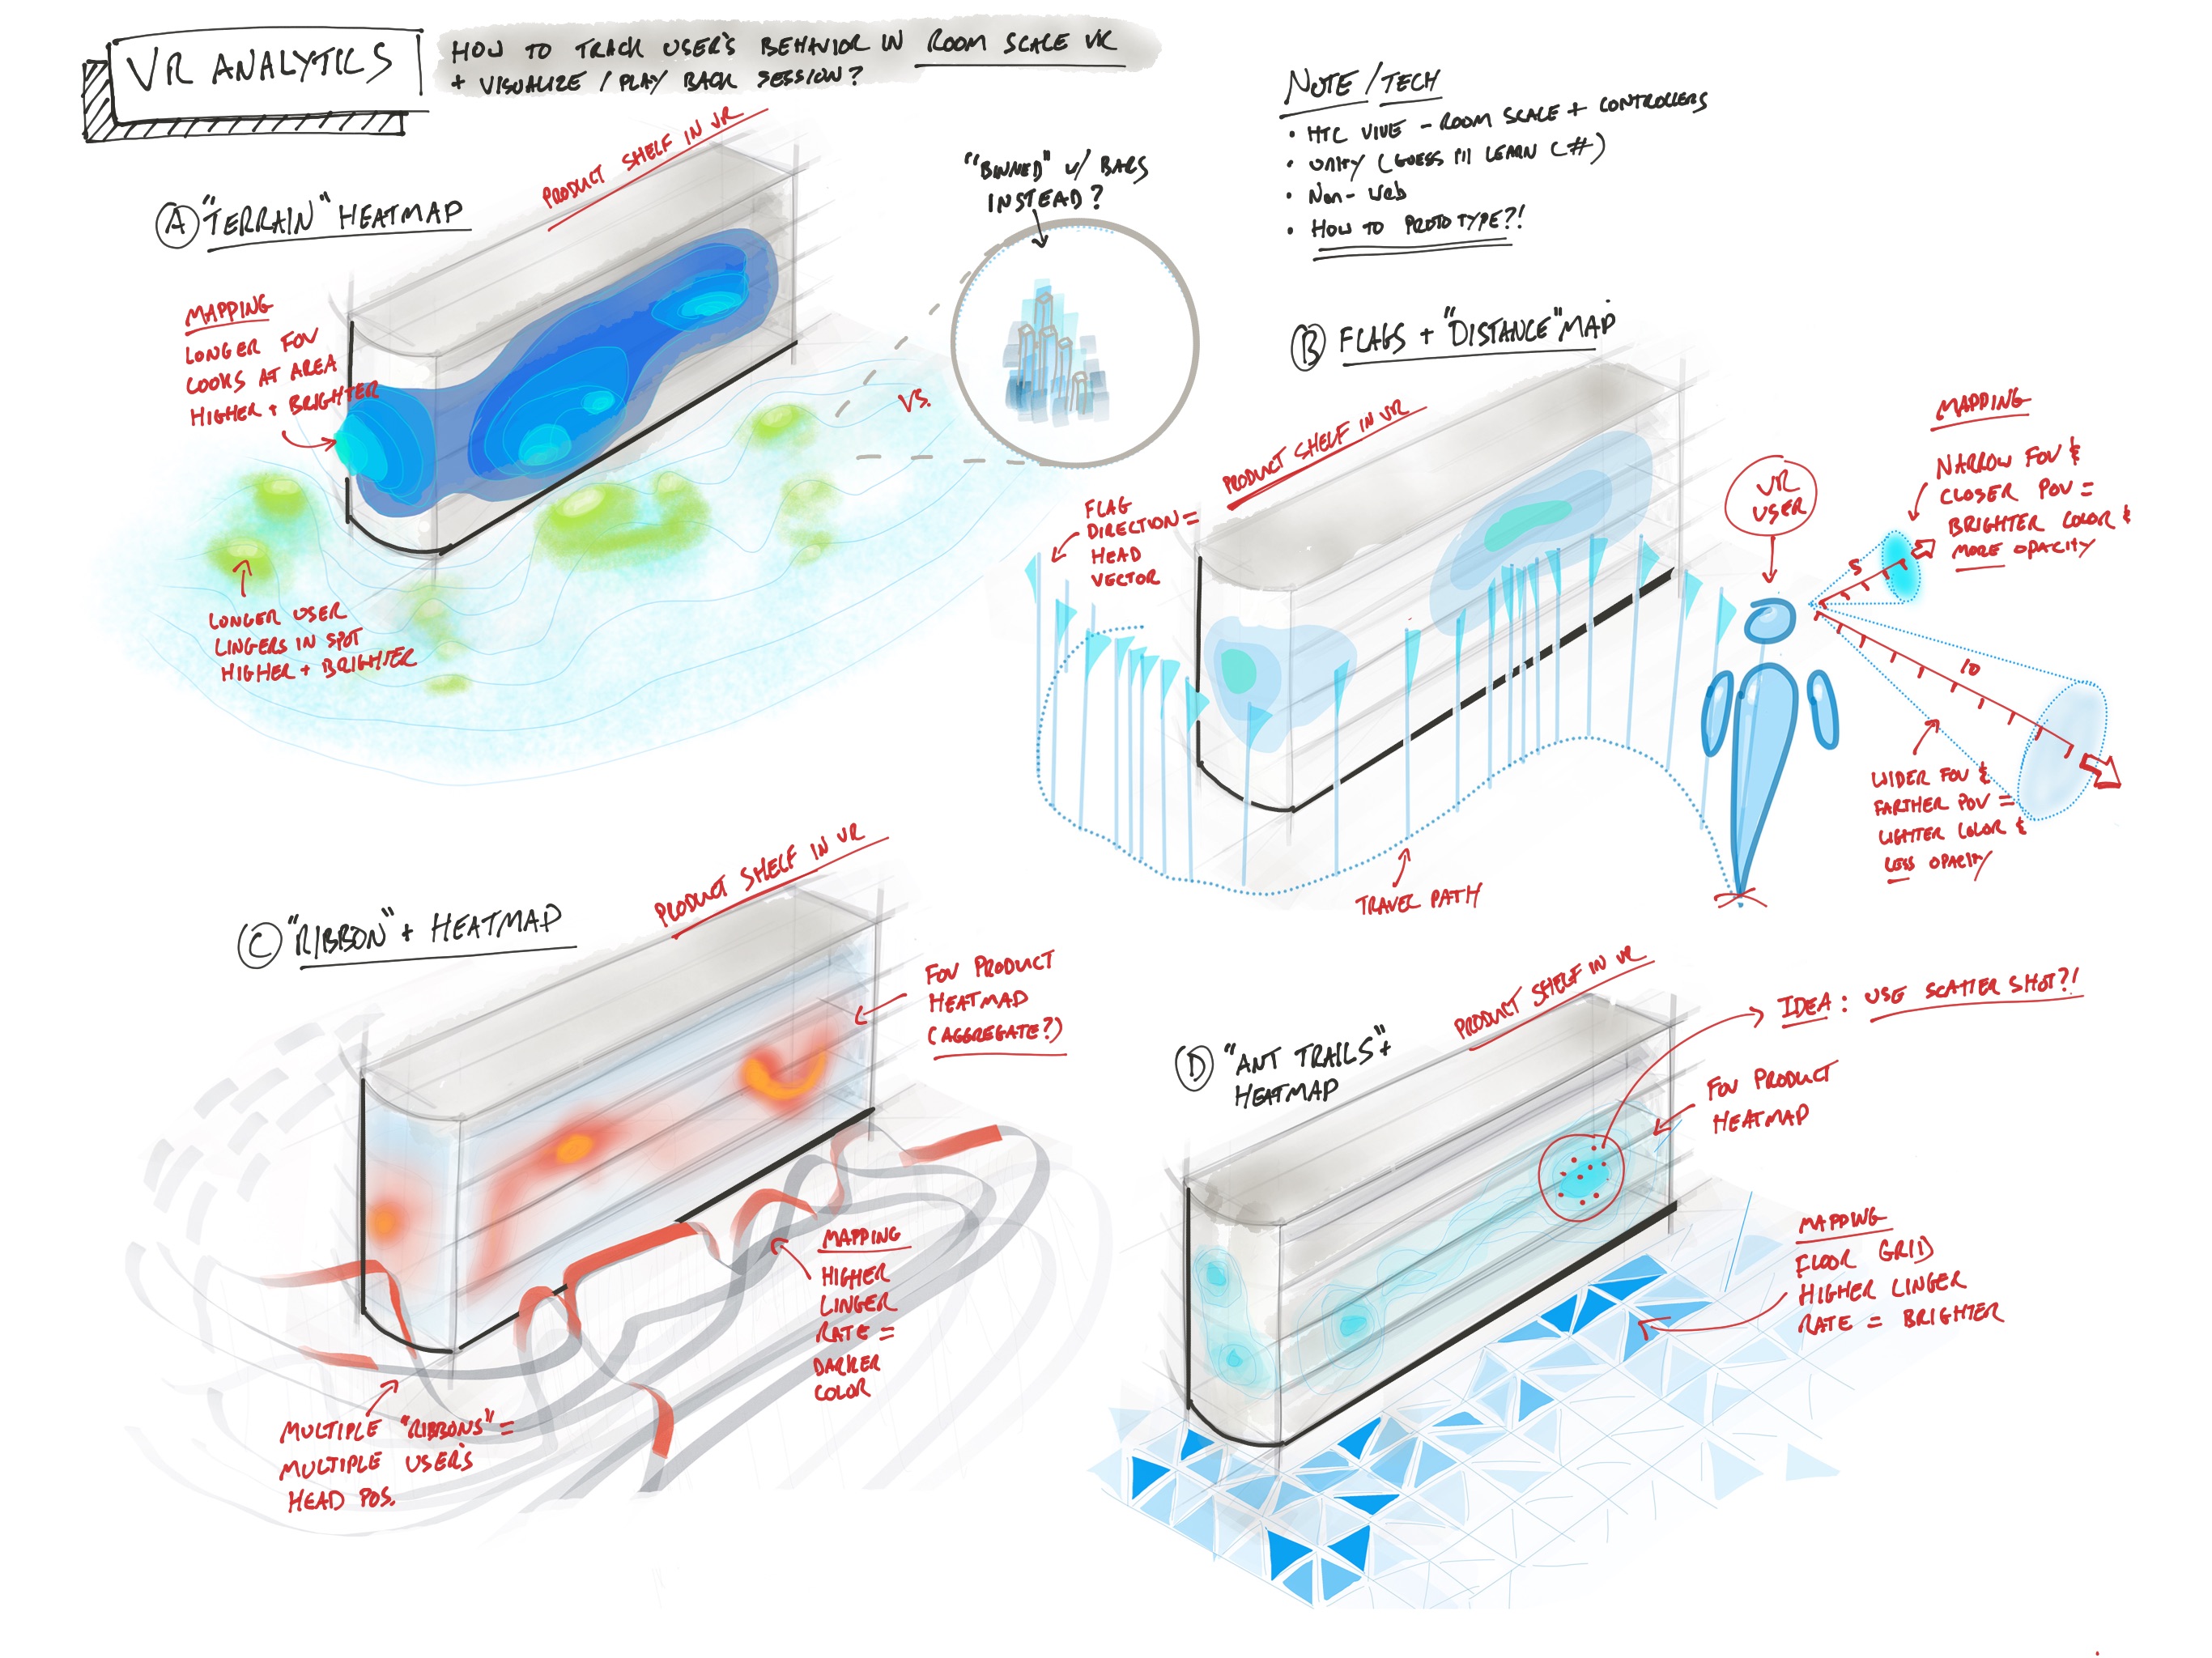 VR ANALYTICS
HOW TO TRACK USER'S BEHAVIOR IN ROOM SCALE VR
+ VISUALIZE / PLAY BACK SESSION?
NOTE / TECH
• HTC VIVE - ROOM SCALE + CONTROLLERS
• UNITY (GUESS I'll LEARN C#)
• Non-Web
• HOW TO PROTOTYPE?!
Ⓐ "TERRAIN" HEATMAP
PRODUCT SHELF IN VR
"BINNED" W/ BARS
INSTEAD?
VS.
MAPPING
LONGER FOV
LOOKS AT AREA
HIGHER + BRIGHTER
LONGER USER
LINGERS IN SPOT
HIGHER + BRIGHTER
Ⓑ FLAGS + "DISTANCE" MAP
PRODUCT SHELF IN VR
FLAG
DIRECTION =
HEAD
VECTOR
VR
USER
MAPPING
NARROW FOV &
CLOSER POV =
BRIGHTER COLOR &
MORE OPACITY
5
10
WIDER FOV &
FARTHER POV =
LIGHTER COLOR &
LESS OPACITY
TRAVEL PATH
Ⓒ "RIBBON" + HEATMAP
PRODUCT SHELF IN VR
FOV PRODUCT
HEATMAP
(AGGREGATE?)
MAPPING
HIGHER
LINGER
RATE =
DARKER
COLOR
MULTIPLE "RIBBONS" =
MULTIPLE USER'S
HEAD POS.
Ⓓ "ANT TRAILS" +
HEATMAP
PRODUCT SHELF IN VR
IDEA: USE SCATTER SHOT?!
FOV PRODUCT
HEATMAP
MAPPING
FLOOR GRID
HIGHER LINGER
RATE = BRIGHTER